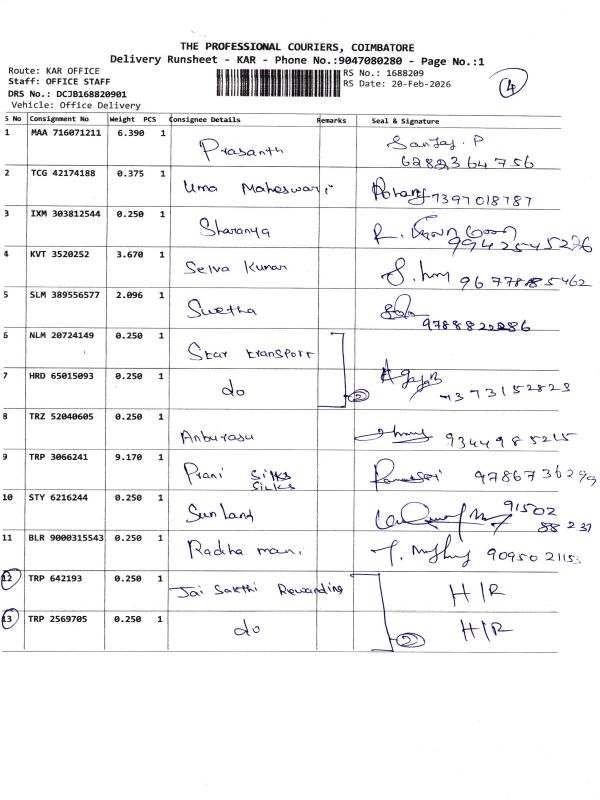 THE PROFESSIONAL COURIERS, COIMBATORE
Delivery Runsheet - KAR - Phone No.:9047080280 - Page No.:1
Route: KAR OFFICE
Staff: OFFICE STAFF
DRS No.: DCJB168820901
Vehicle: Office Delivery
RS No.: 1688209
RS Date: 20-Feb-2026
4
S No Consignment No Weight PCS Consignee Details Remarks Seal & Signature
1 MAA 716071211 6.390 1 Prasanth Sanjay. P
6282364756
2 TCG 42174188 0.375 1 Uma Maheswari 7397018787
3 IXM 303812544 0.250 1 Sharanya
99425 45226
4 KVT 3520252 3.670 1 Selva Kumar
5 SLM 389556577 2.096 1 Swetha
9788822286
6 NLM 20724149 0.250 1 Star transport
7 HRD 65015093 0.250 1 do 2 7373152823
8 TRZ 52040605 0.250 1 Anburasu 9344985215
9 TRP 3066241 9.170 1 Prani Silks 9786736299
SILKS
10 STY 6216244 0.250 1 Sun land 91502
88231
11 BLR 9000315543 0.250 1 Radha mani. 9095021153
12 TRP 642193 0.250 1 Jai Sakthi Rewanding H/R
13 TRP 2569705 0.250 1 do 2 H/R